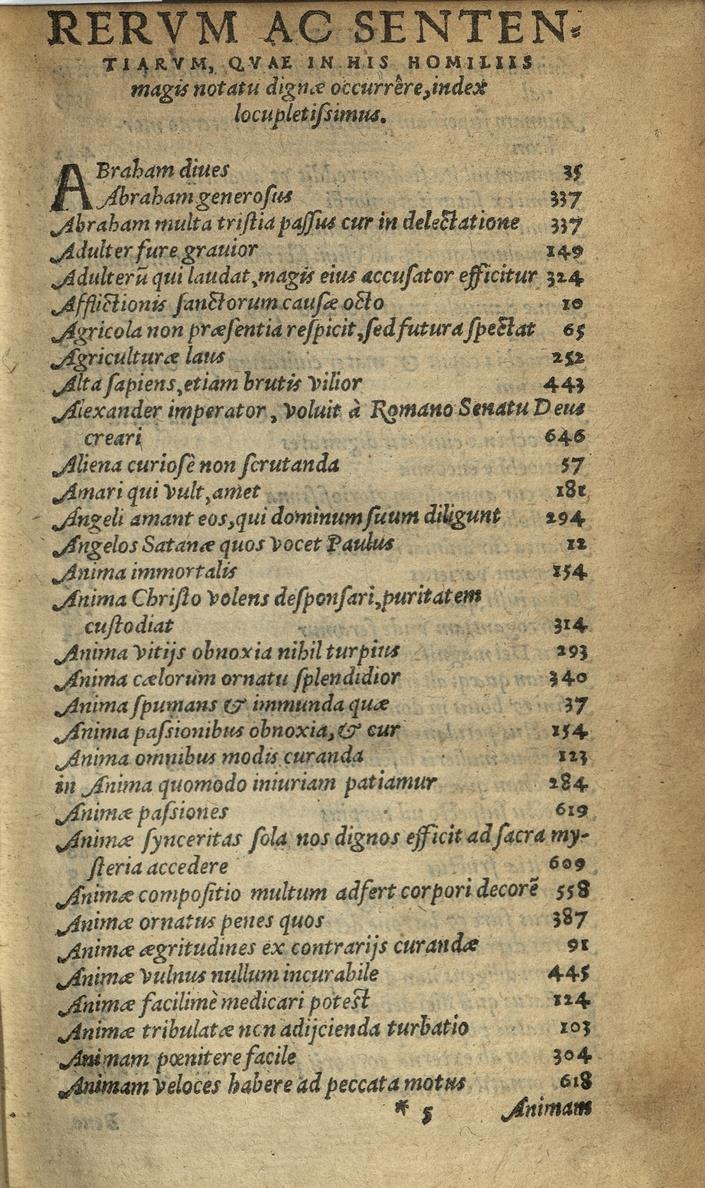 RERVM AC SENTEN-
TIARVM, QVAE IN HIS HOMILIIS
magis notatu dignæ occurrêre, index
locupletiſsimus.
ABraham diues 35
Abraham generoſus 337
Abraham multa triſtia paſſus cur in delectatione 337
Adulter fure grauior 149
Adulterū qui laudat, magis eius accuſator efficitur 324
Afflictionis ſanctorum cauſæ octo 10
Agricola non præſentia reſpicit, ſed futura ſpectat 65
Agriculturæ laus 252
Alta ſapiens, etiam brutis vilior 443
Alexander imperator, voluit à Romano Senatu Deus
creari 646
Aliena curioſè non ſcrutanda 57
Amari qui vult, amet 181
Angeli amant eos, qui dominum ſuum diligunt 294
Angelos Satanæ quos vocet Paulus 12
Anima immortalis 154
Anima Chriſto volens deſponſari, puritatem
cuſtodiat 314
Anima vitijs obnoxia nihil turpius 293
Anima cælorum ornatu ſplendidior 340
Anima ſpumans & immunda quæ 37
Anima paſsionibus obnoxia, & cur 154
Anima omnibus modis curanda 123
in Anima quomodo iniuriam patiamur 284
Animæ paſsiones 619
Animæ ſynceritas ſola nos dignos efficit ad ſacra my-
ſteria accedere 609
Animæ compoſitio multum adfert corpori decorē 558
Animæ ornatus penes quos 387
Animæ ægritudines ex contrarijs curandæ 91
Animæ vulnus nullum incurabile 445
Animæ facilimè medicari poteſt 124
Animæ tribulatæ non adijcienda turbatio 103
Animam pœnitere facile 304
Animam veloces habere ad peccata motus 618
* 5 Animam